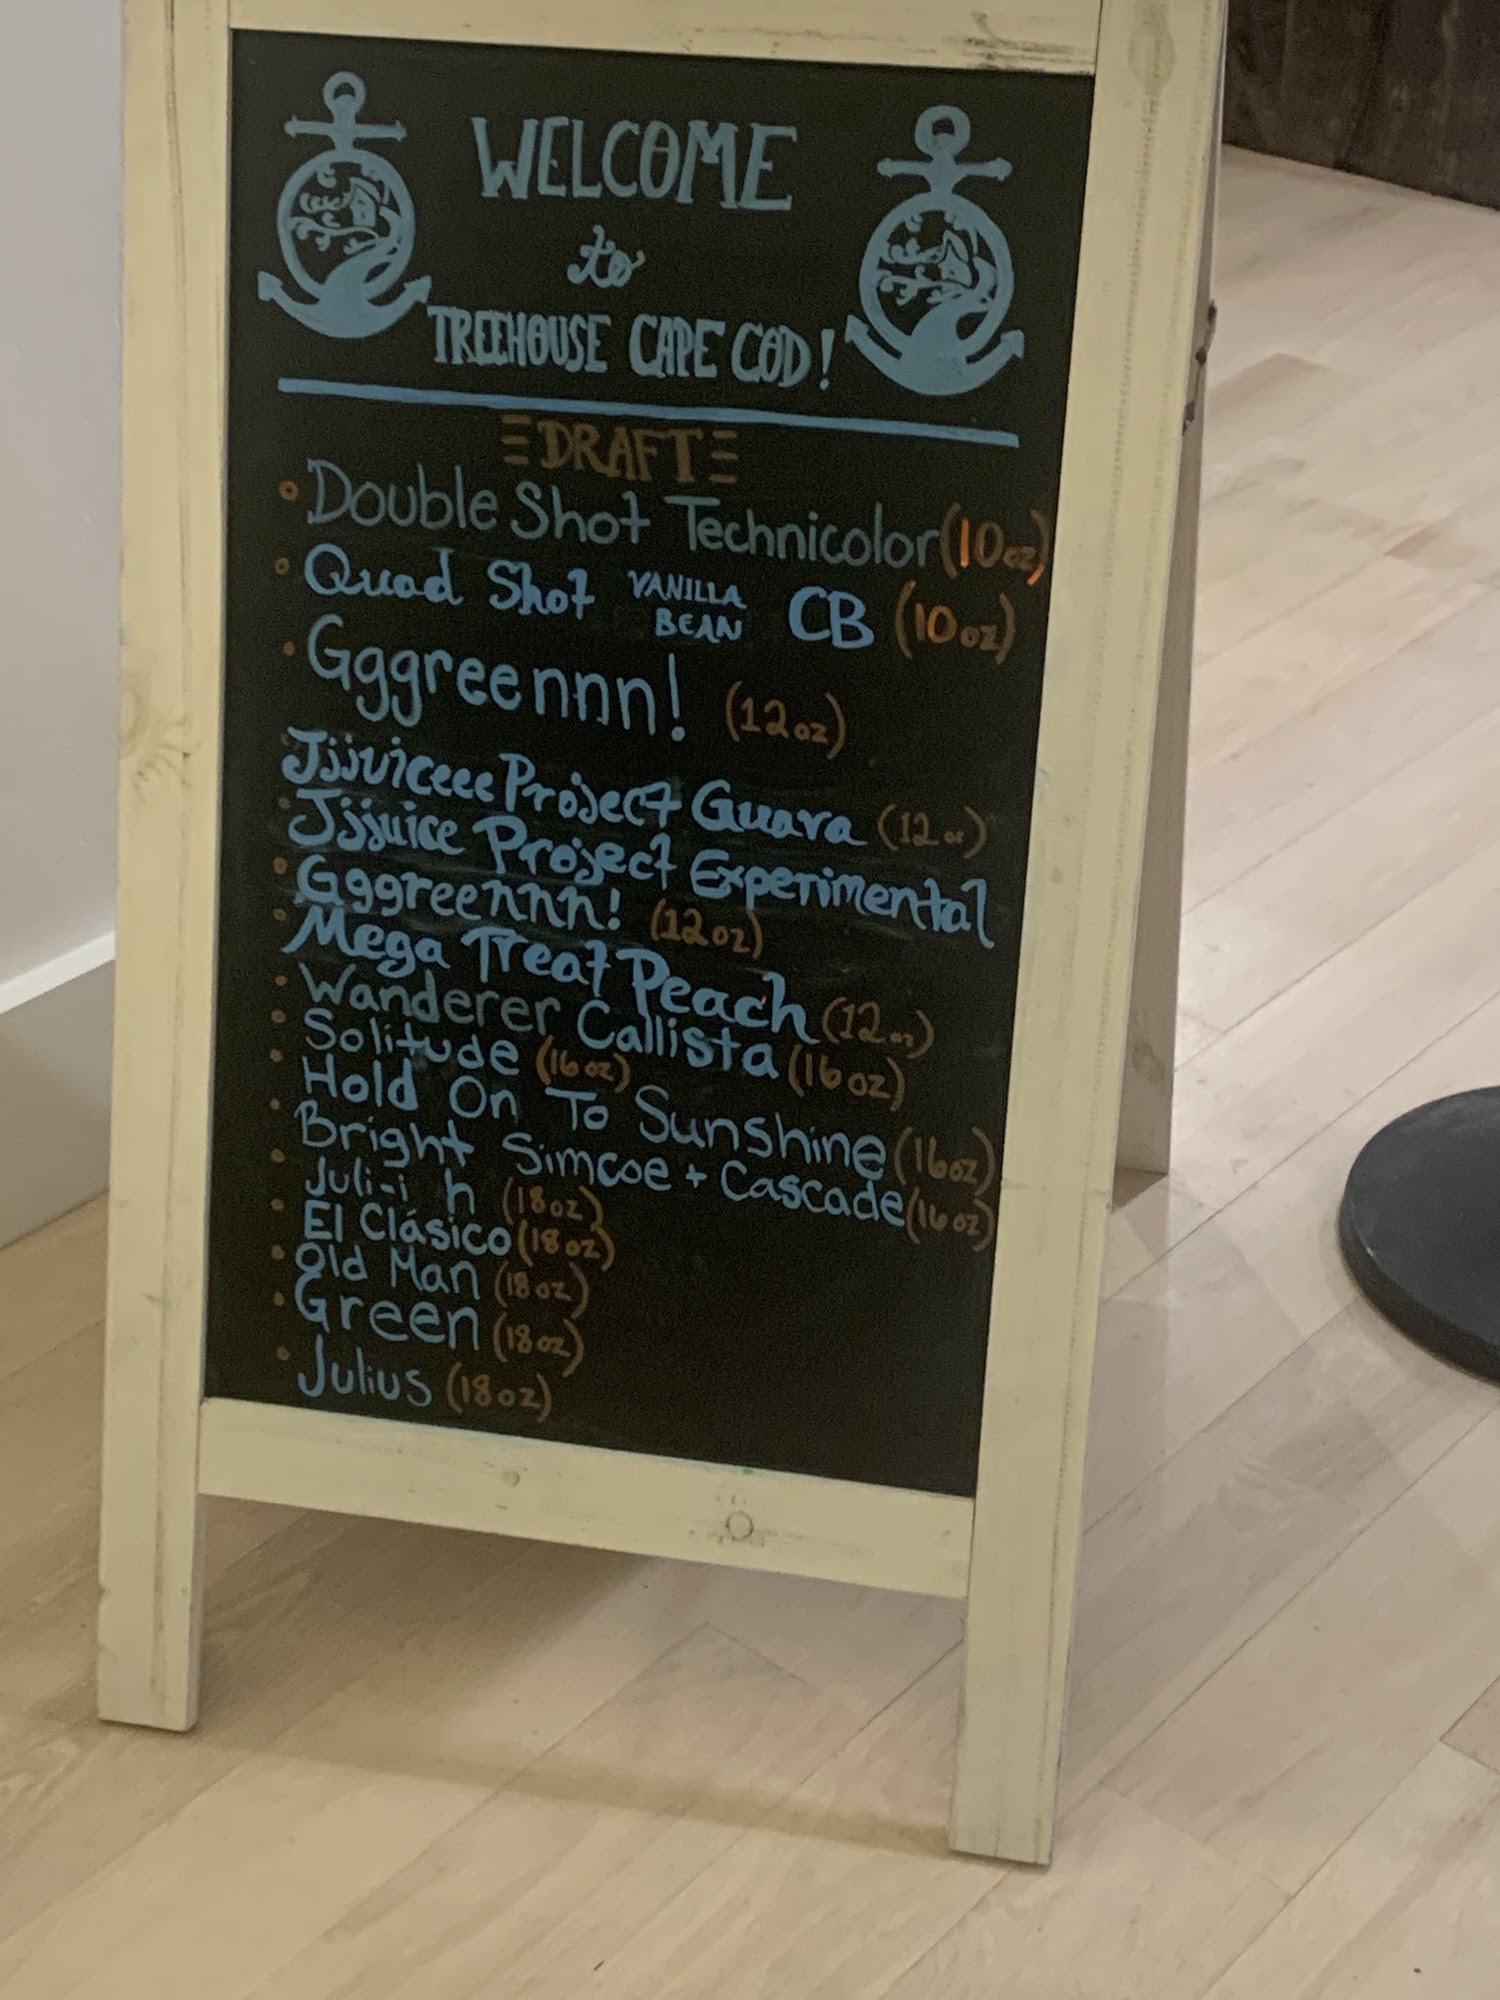 WELCOME
to
TREEHOUSE CAPE COD!
DRAFT
Double Shot Technicolor (10oz)
Quad Shot VANILLA BEAN CB (10oz)
Gggreennnn! (12oz)
Jjjuiceeee Project Guava (12oz)
Jjjuice Project Experimental
Gggreennnn! (12oz)
Mega Treat Peach (12oz)
Wanderer Callista (16oz)
Solitude (16oz)
Hold On To Sunshine (16oz)
Bright Simcoe + Cascade (16oz)
(18oz)
El Clásico (18oz)
Old Man (18oz)
Green (18oz)
Julius (18oz)